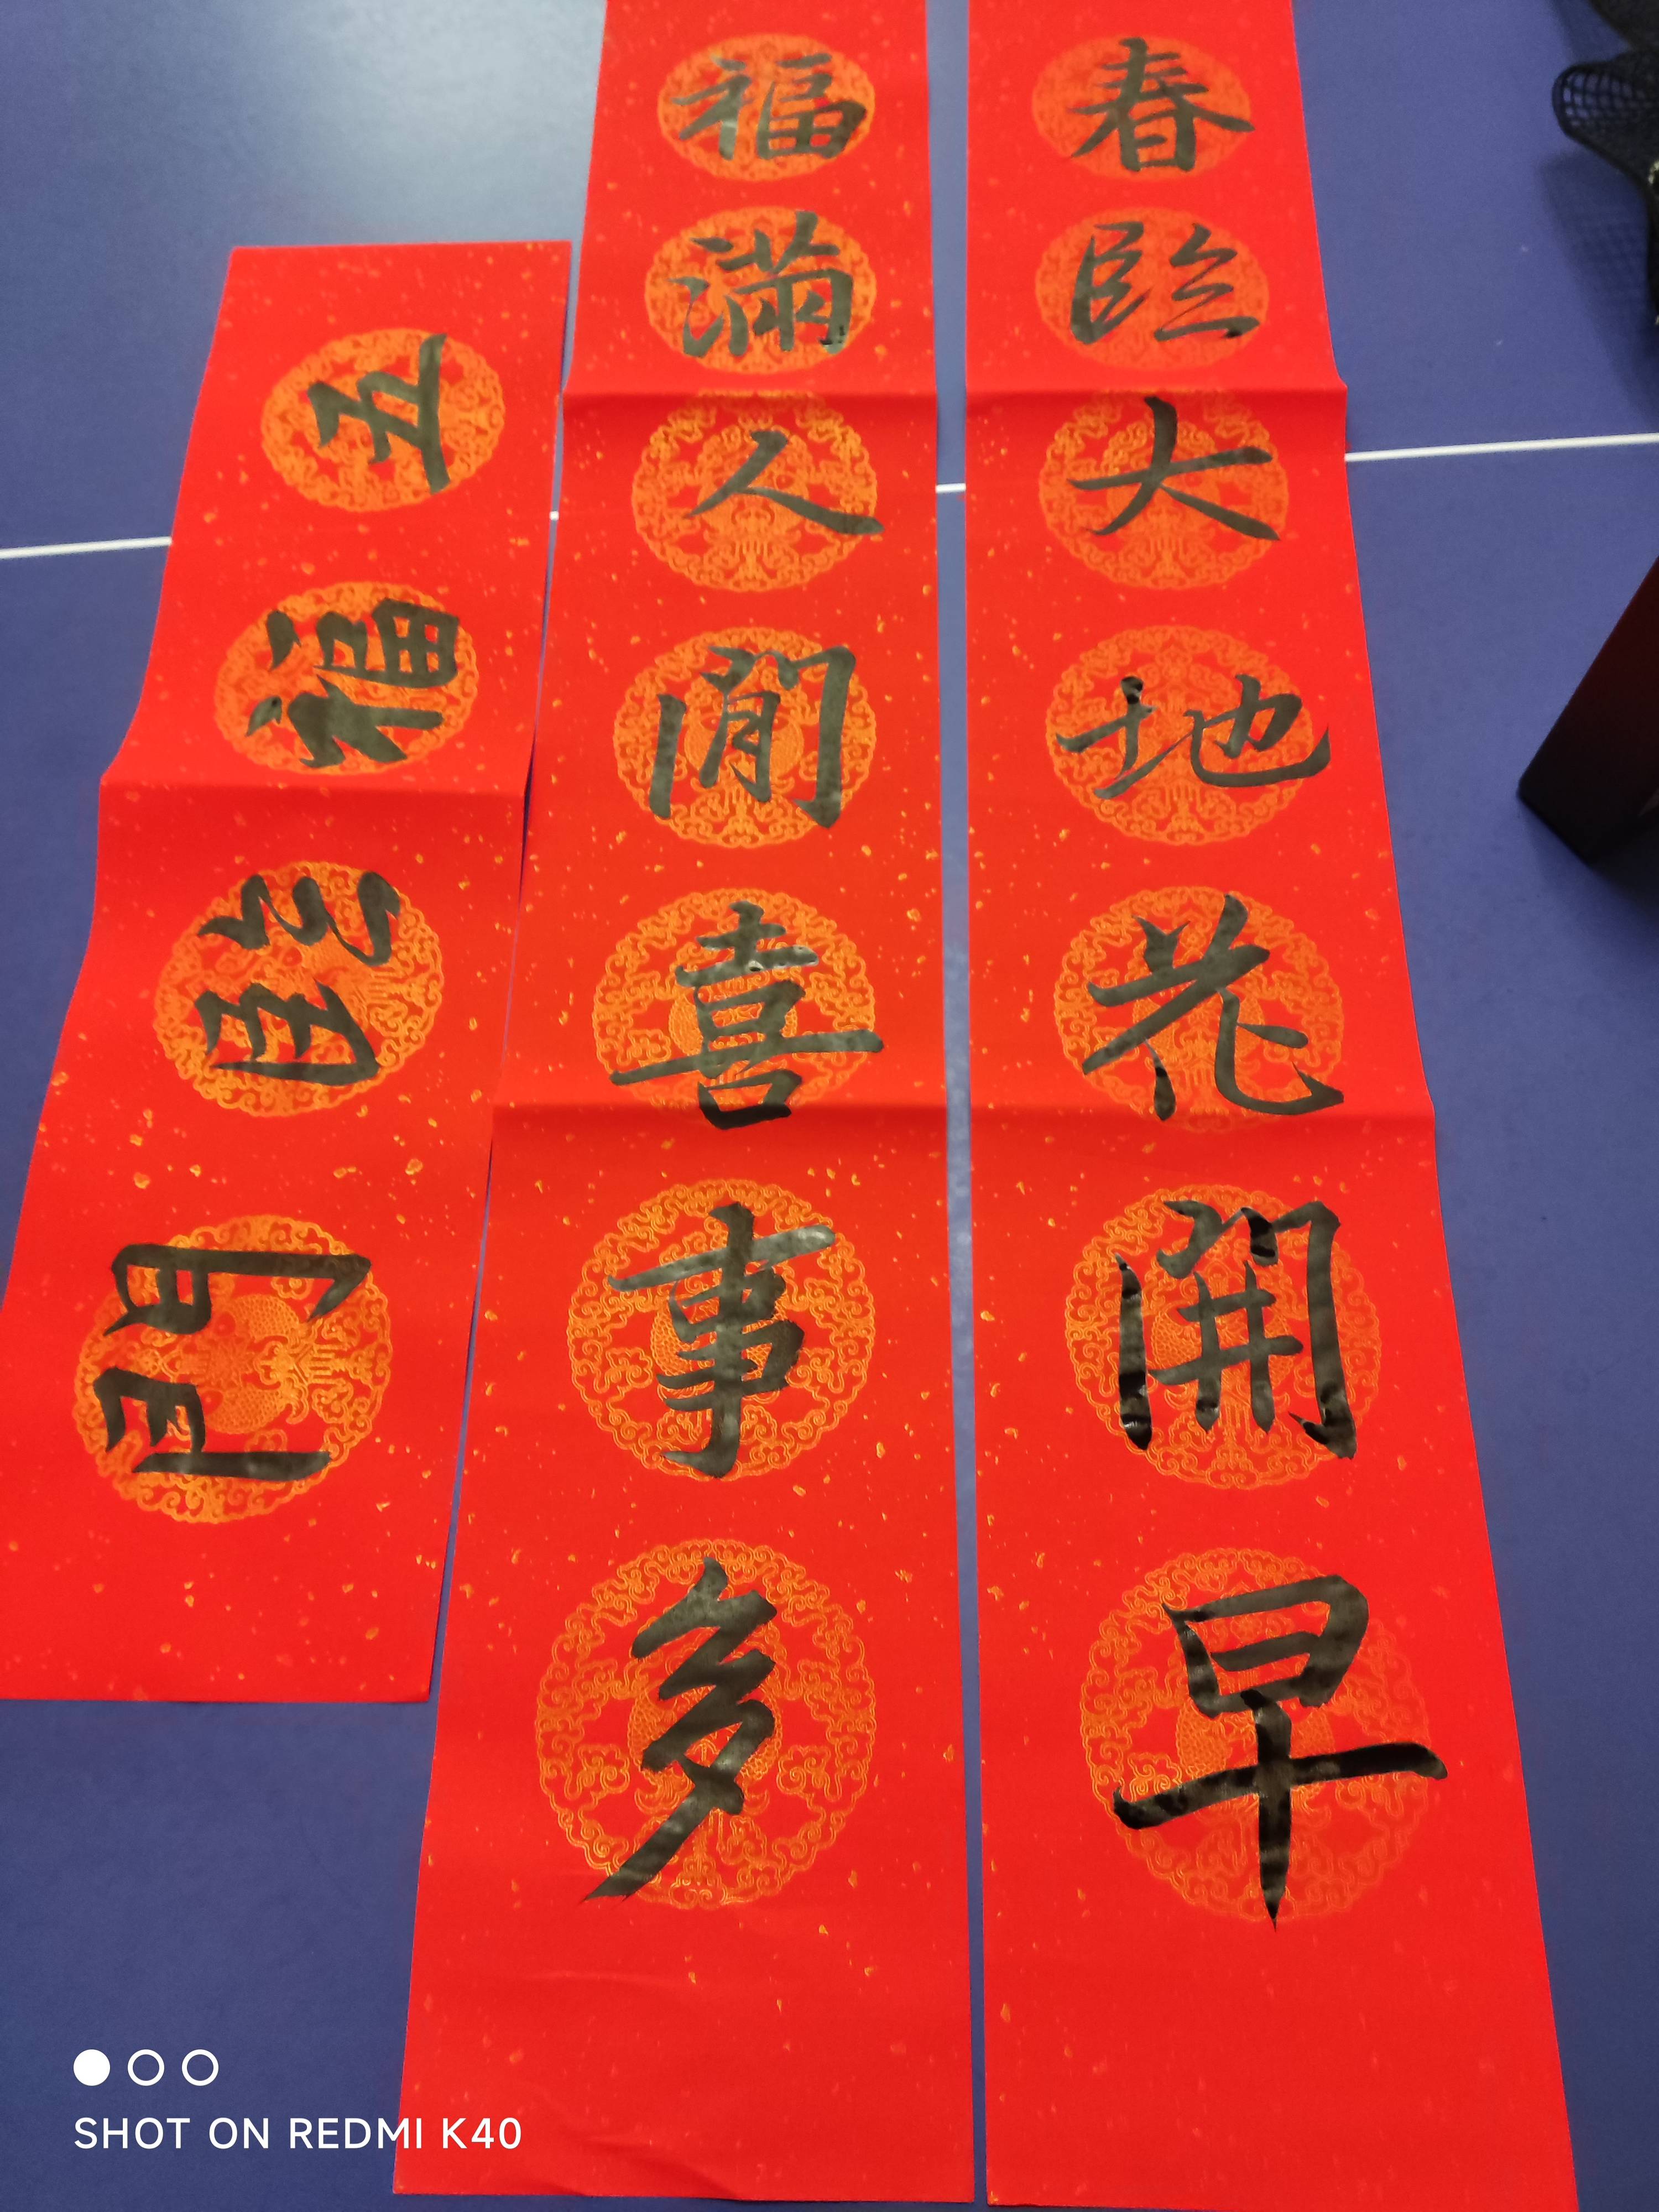 春臨大地花開早
福滿人閒喜事多
五福臨門
SHOT ON REDMI K40